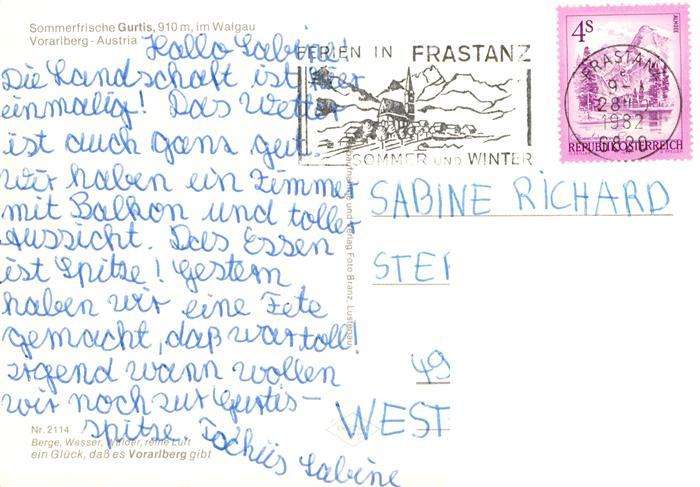 Sommerfrische Gurtis, 910 m, im Walgau
Vorarlberg - Austria
Hallo Sabine!
Die Landschaft ist hier
einmalig! Das Wetter
ist auch ganz gut.
Wir haben ein Zimmer
mit Balkon und toller
Aussicht. Das Essen
ist Spitze! Gestern
haben wir eine Fete
gemacht, daß war toll
irgend wann wollen
wir noch zur Gurtis-
spitze. Tschüs Sabine
Nr. 2114
Berge, Wasser, Wälder, reine Luft
ein Glück, daß es Vorarlberg gibt
FERIEN IN FRASTANZ
SOMMER UND WINTER
4S
ALMSEE
FRASTANZ
9-
1982
6820
REPUBLIK ÖSTERREICH
und Verlag Foto Branz, Lustenau
SABINE RICHARD
STE
49
WEST